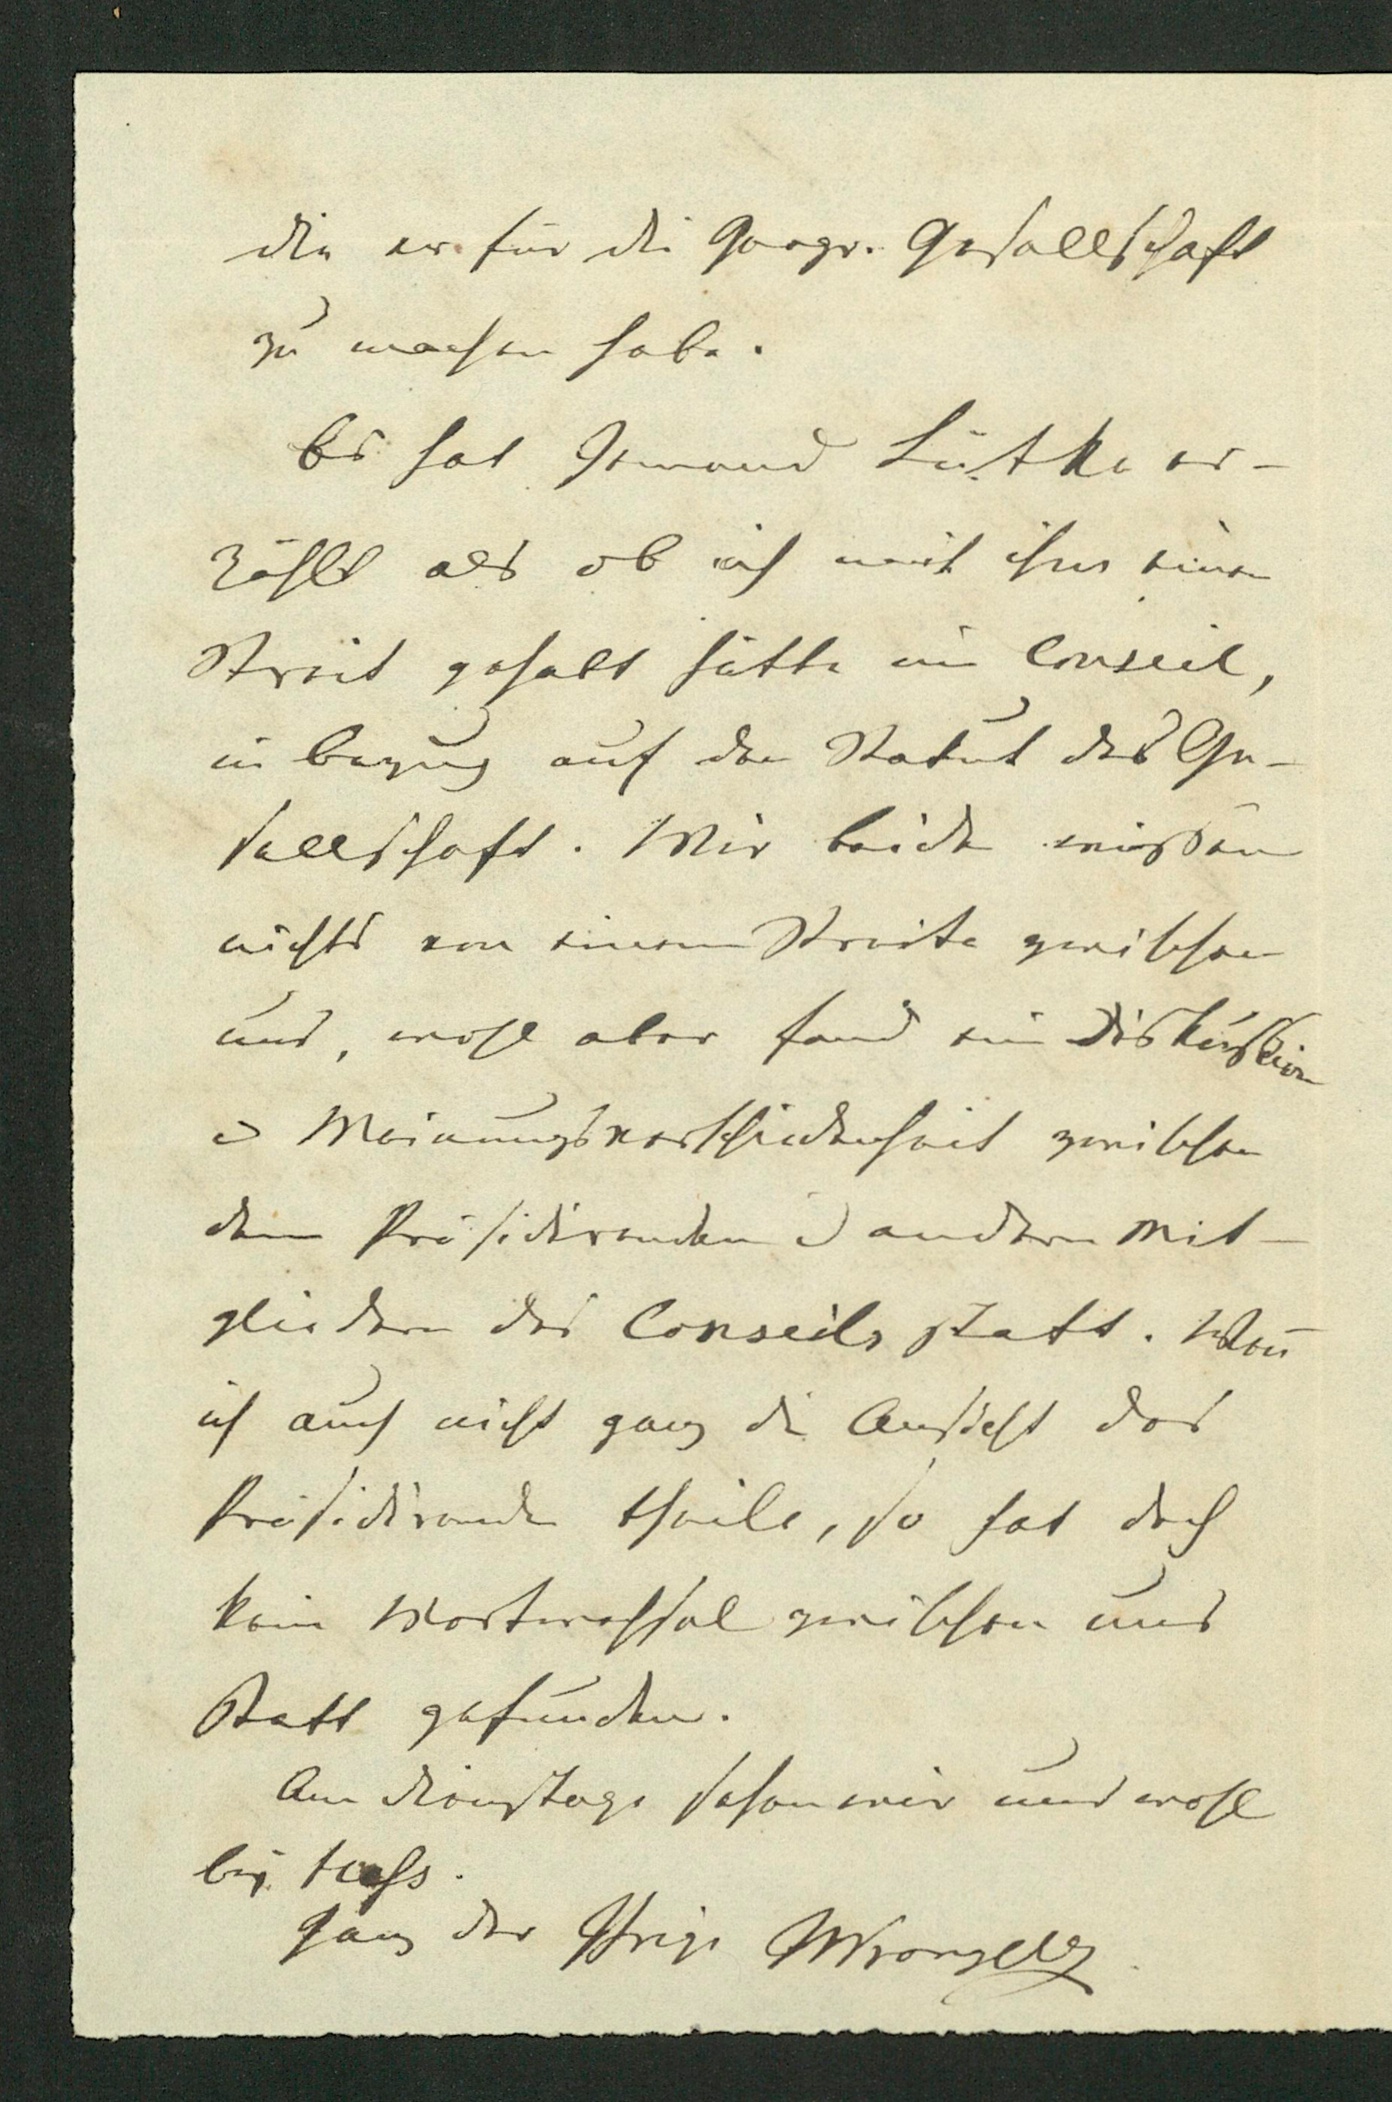 die er für die Geogr. Gesellschaft
zu machen habe.
Es hat Jemand Lütke er-
zählt als ob ich mit ihm einen
Streit gehabt hätte im Conseil,
in bezug auf den Statut der Ge-
sellschaft. Wir beide wißen
nichts von einem Streite zwischen
uns, wohl aber fand ein Diskussion
u Meinungsverschiedenheit zwischen
dem Präsidirenden u andern Mit-
gliedern des Conseils statt. Wen̄
ich auch nicht ganz die Ansicht des
Präsidirenden theile, so hat doch
kein Wortwechsel zwischen uns
Statt gefunden.
Am Dienstage sehen wir uns wohl
bei
Ganz der Ihrige Wrangell